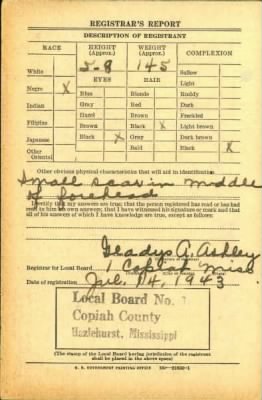 REGISTRAR'S REPORT
DESCRIPTION OF REGISTRANT
RACE HEIGHT (Approx.) WEIGHT (Approx.) COMPLEXION
5-8 145
White Sallow
EYES HAIR Light
Negro X Blue Blonde Ruddy
Indian Gray Red Dark
Filipino Hazel Brown Freckled
Brown Black X Light brown
Japanese Black X Gray Dark brown
Other Oriental Bald Black X
Other obvious physical characteristics that will aid in identification
Small scar in middle
of forehead
I certify that my answers are true; that the person registered has read or has had
read to him his own answers; that I have witnessed his signature or mark and that
all of his answers of which I have knowledge are true, except as follows:
Gladys A. Ashley
Registrar for Local Board 1 Copiah Miss
Date of registration 14, 1943
Local Board No.
Copiah County
Hazlehurst, Mississippi
(The stamp of the Local Board having jurisdiction of the registrant
shall be placed in the above space)
U. S. GOVERNMENT PRINTING OFFICE 16—21630-1